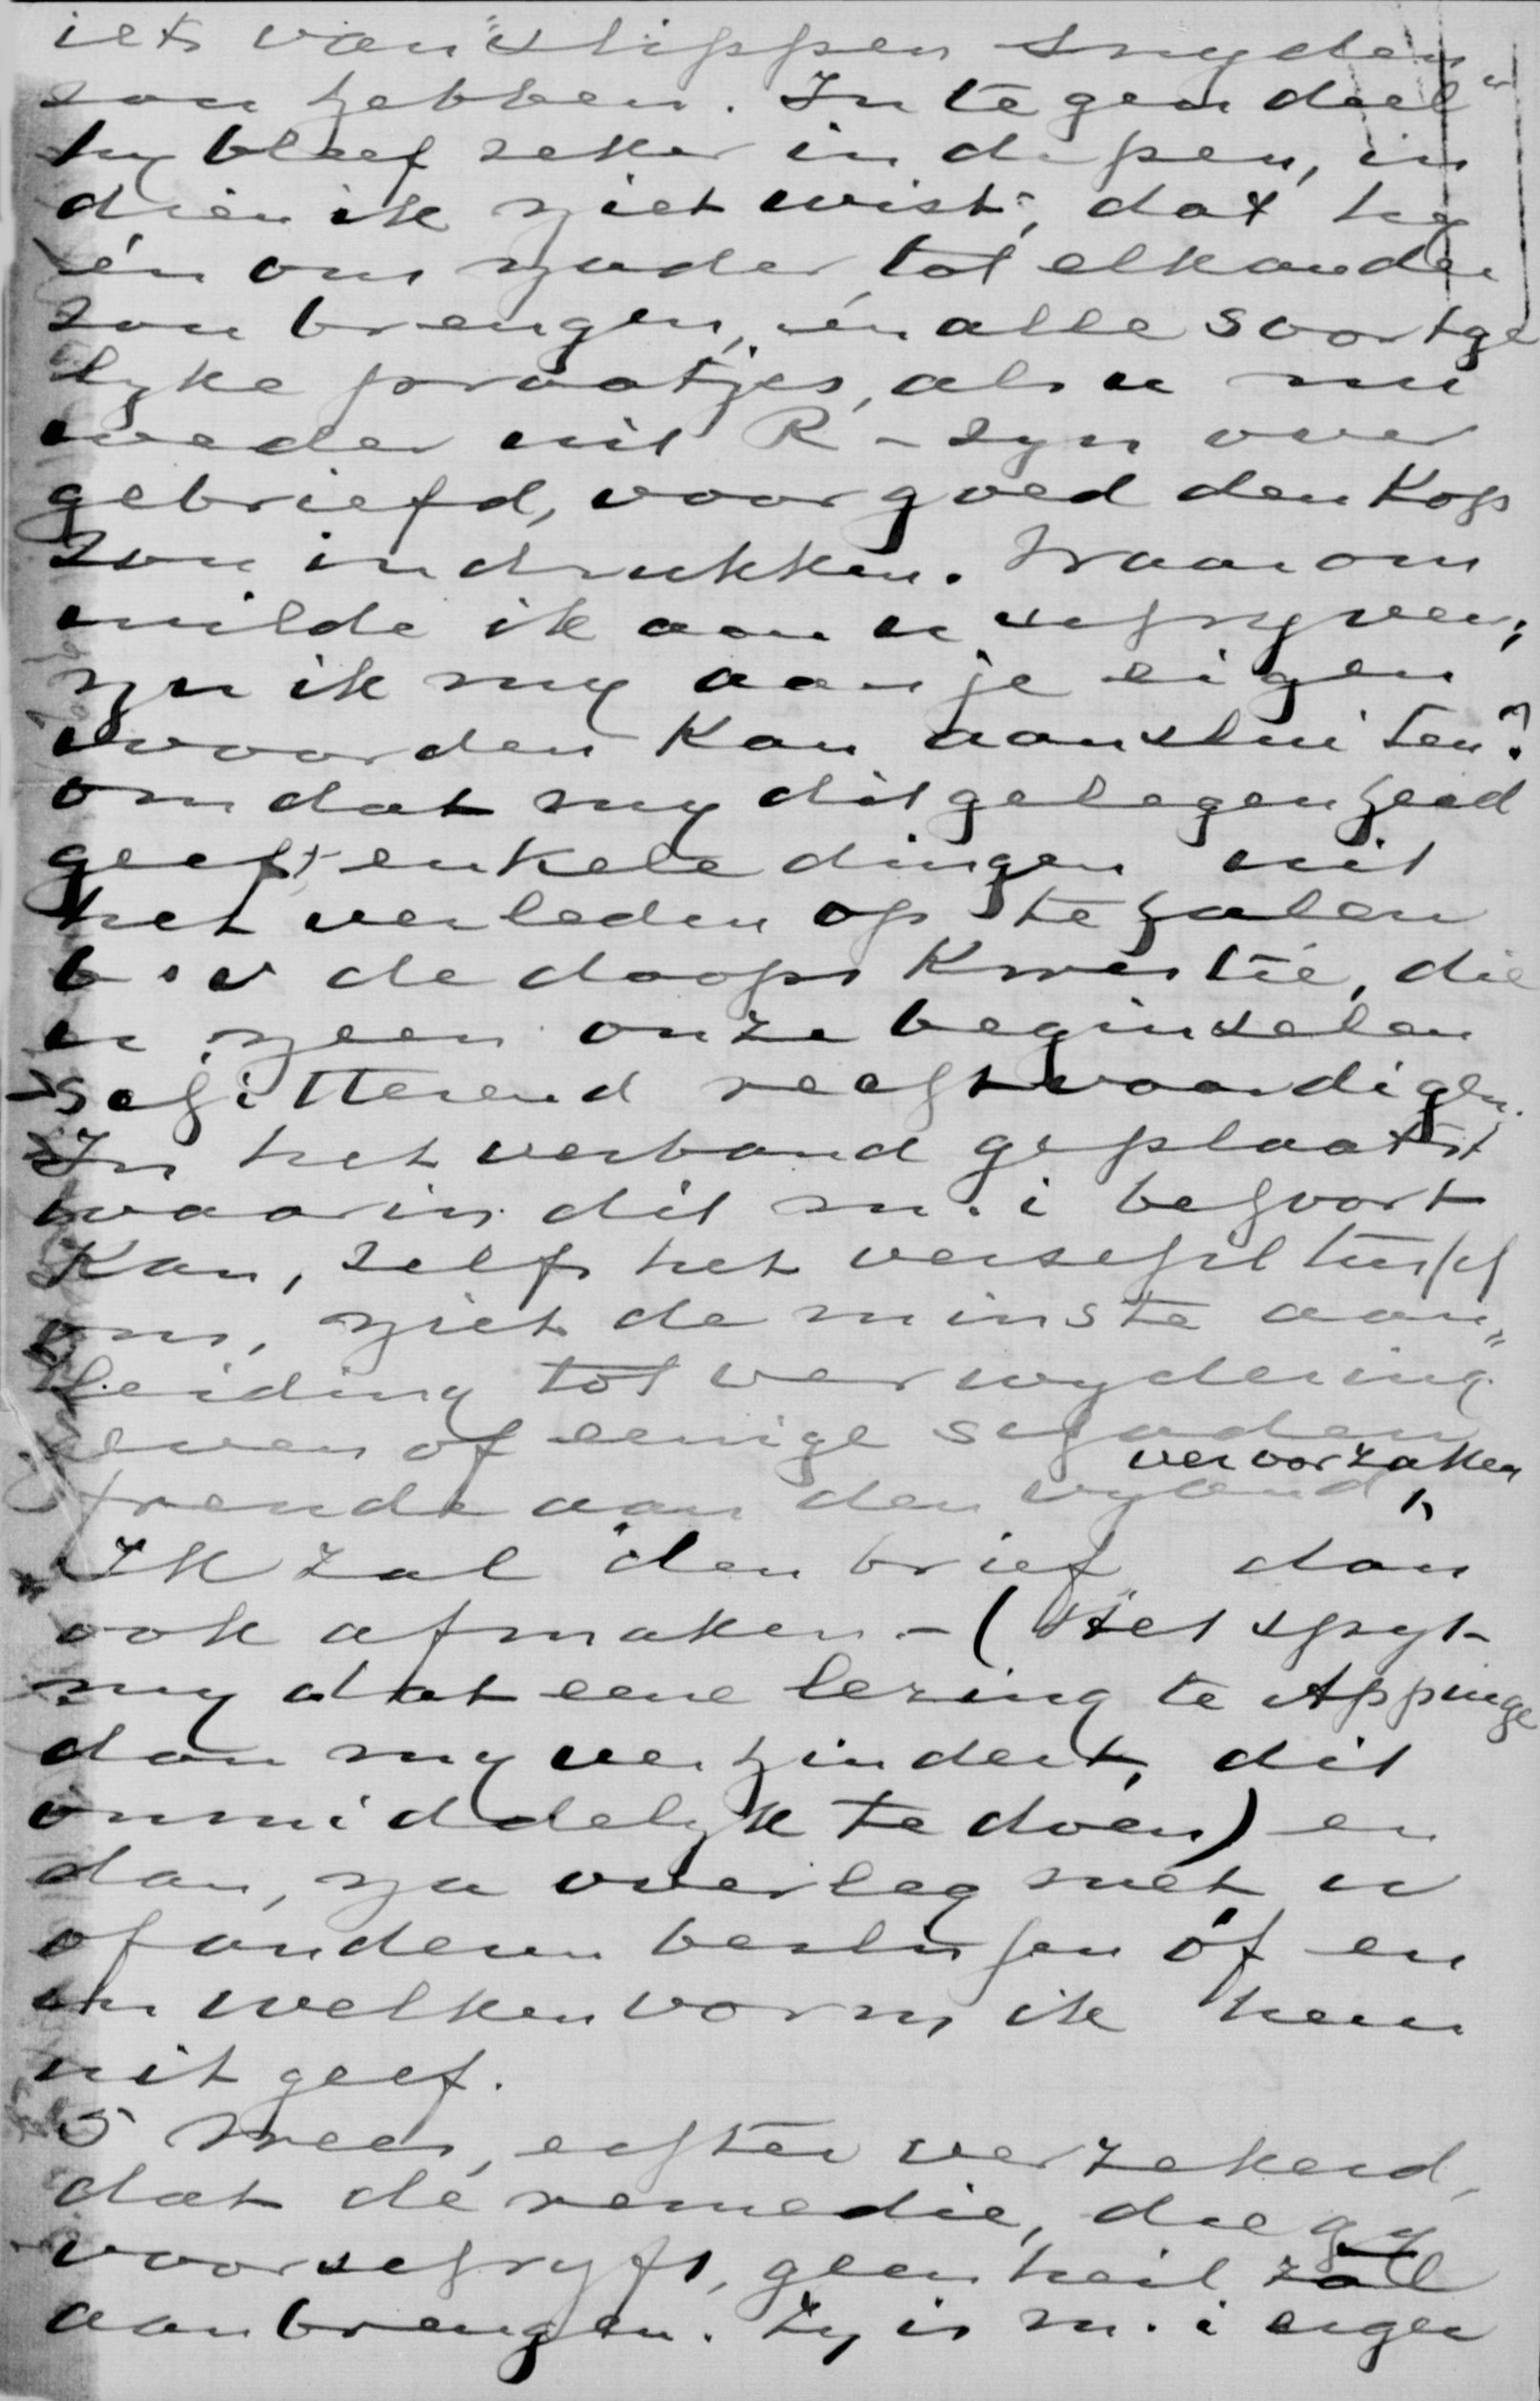 iets van "slippen snyden
zou hebben. In tegendeel"
hy bleef zeker in de pen, in
dien ik niet wist, dat hy
én ons nader tot elkander
zou brengen, én alle soortge
lyke praatjes, als u nu
weder uit R-zyn over
gebriefd, voor goed den kop
zou indrukken. Waarom
wilde ik aan u schryven;
nu ik my aan je eigen
woorden kan aansluiten?
omdat my dit gelegenheid
geeft enkele dingen uit
het verleden op te halen
b.v de doops kwestie, die
u neen onze beginselen
schitterend rechtvaardigen.
In het verband geplaatst
waarin dit m.i behoort
kan, zelfs het verschil tussch
ons, niet de minste aan„
leiding tot verwydering
geven of eenige schaden
vervoorzaken
freude aan den vyand,
Ik zal den brief dan
ook afmaken - (Het spyt
my dat eene lezing te Appinge
dam my verhindert, dit
onmiddelyk te doen) en
dan, na overleg met u
of anderen beslissen óf en
in welken vorm ik hem
uitgeef.
Wees, echter verzekerd,
dat dé remedie, die gy
voorschryft, geen heil zal
aanbrengen. Zy is m.i erger